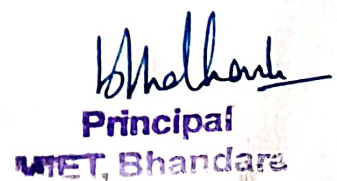 Principal
MIET, Bhandara